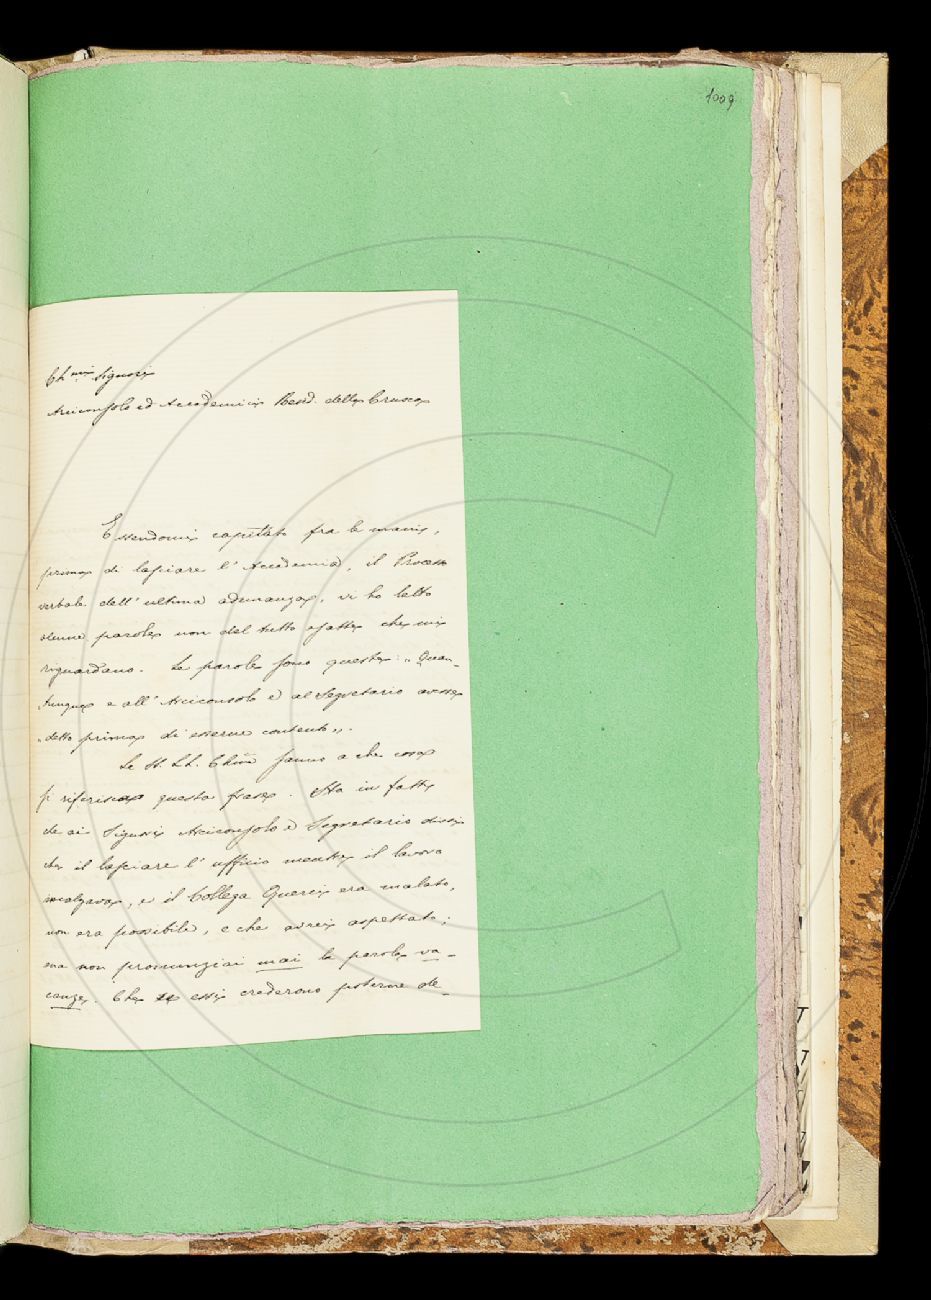 1009
Ch.mi Signori
Arciconsolo ed Accademici Resid. della Crusca
Essendomi capitato fra le mani,
prima di lasciare l'Accademia, il Processo
verbale dell'ultima adunanza, vi ho letto
alcune parole non del tutto esatte che mi
riguardano. Le parole sono queste: "Quan-
"tunque e all'Arciconsolo e al Segretario avesse
"detto prima di esserne contento".
Le SS. LL. Chme sanno a che cosa
si riferisca questa frase. Sta in fatto
che ai Signori Arciconsolo e Segretario dissi
che il lasciare l'uffizio mentre il lavoro
incalzava, e il Collega Guerci era malato,
non era possibile, e che avrei aspettato;
ma non pronunziai mai la parola va-
canze. Che essi crederono poterne de-